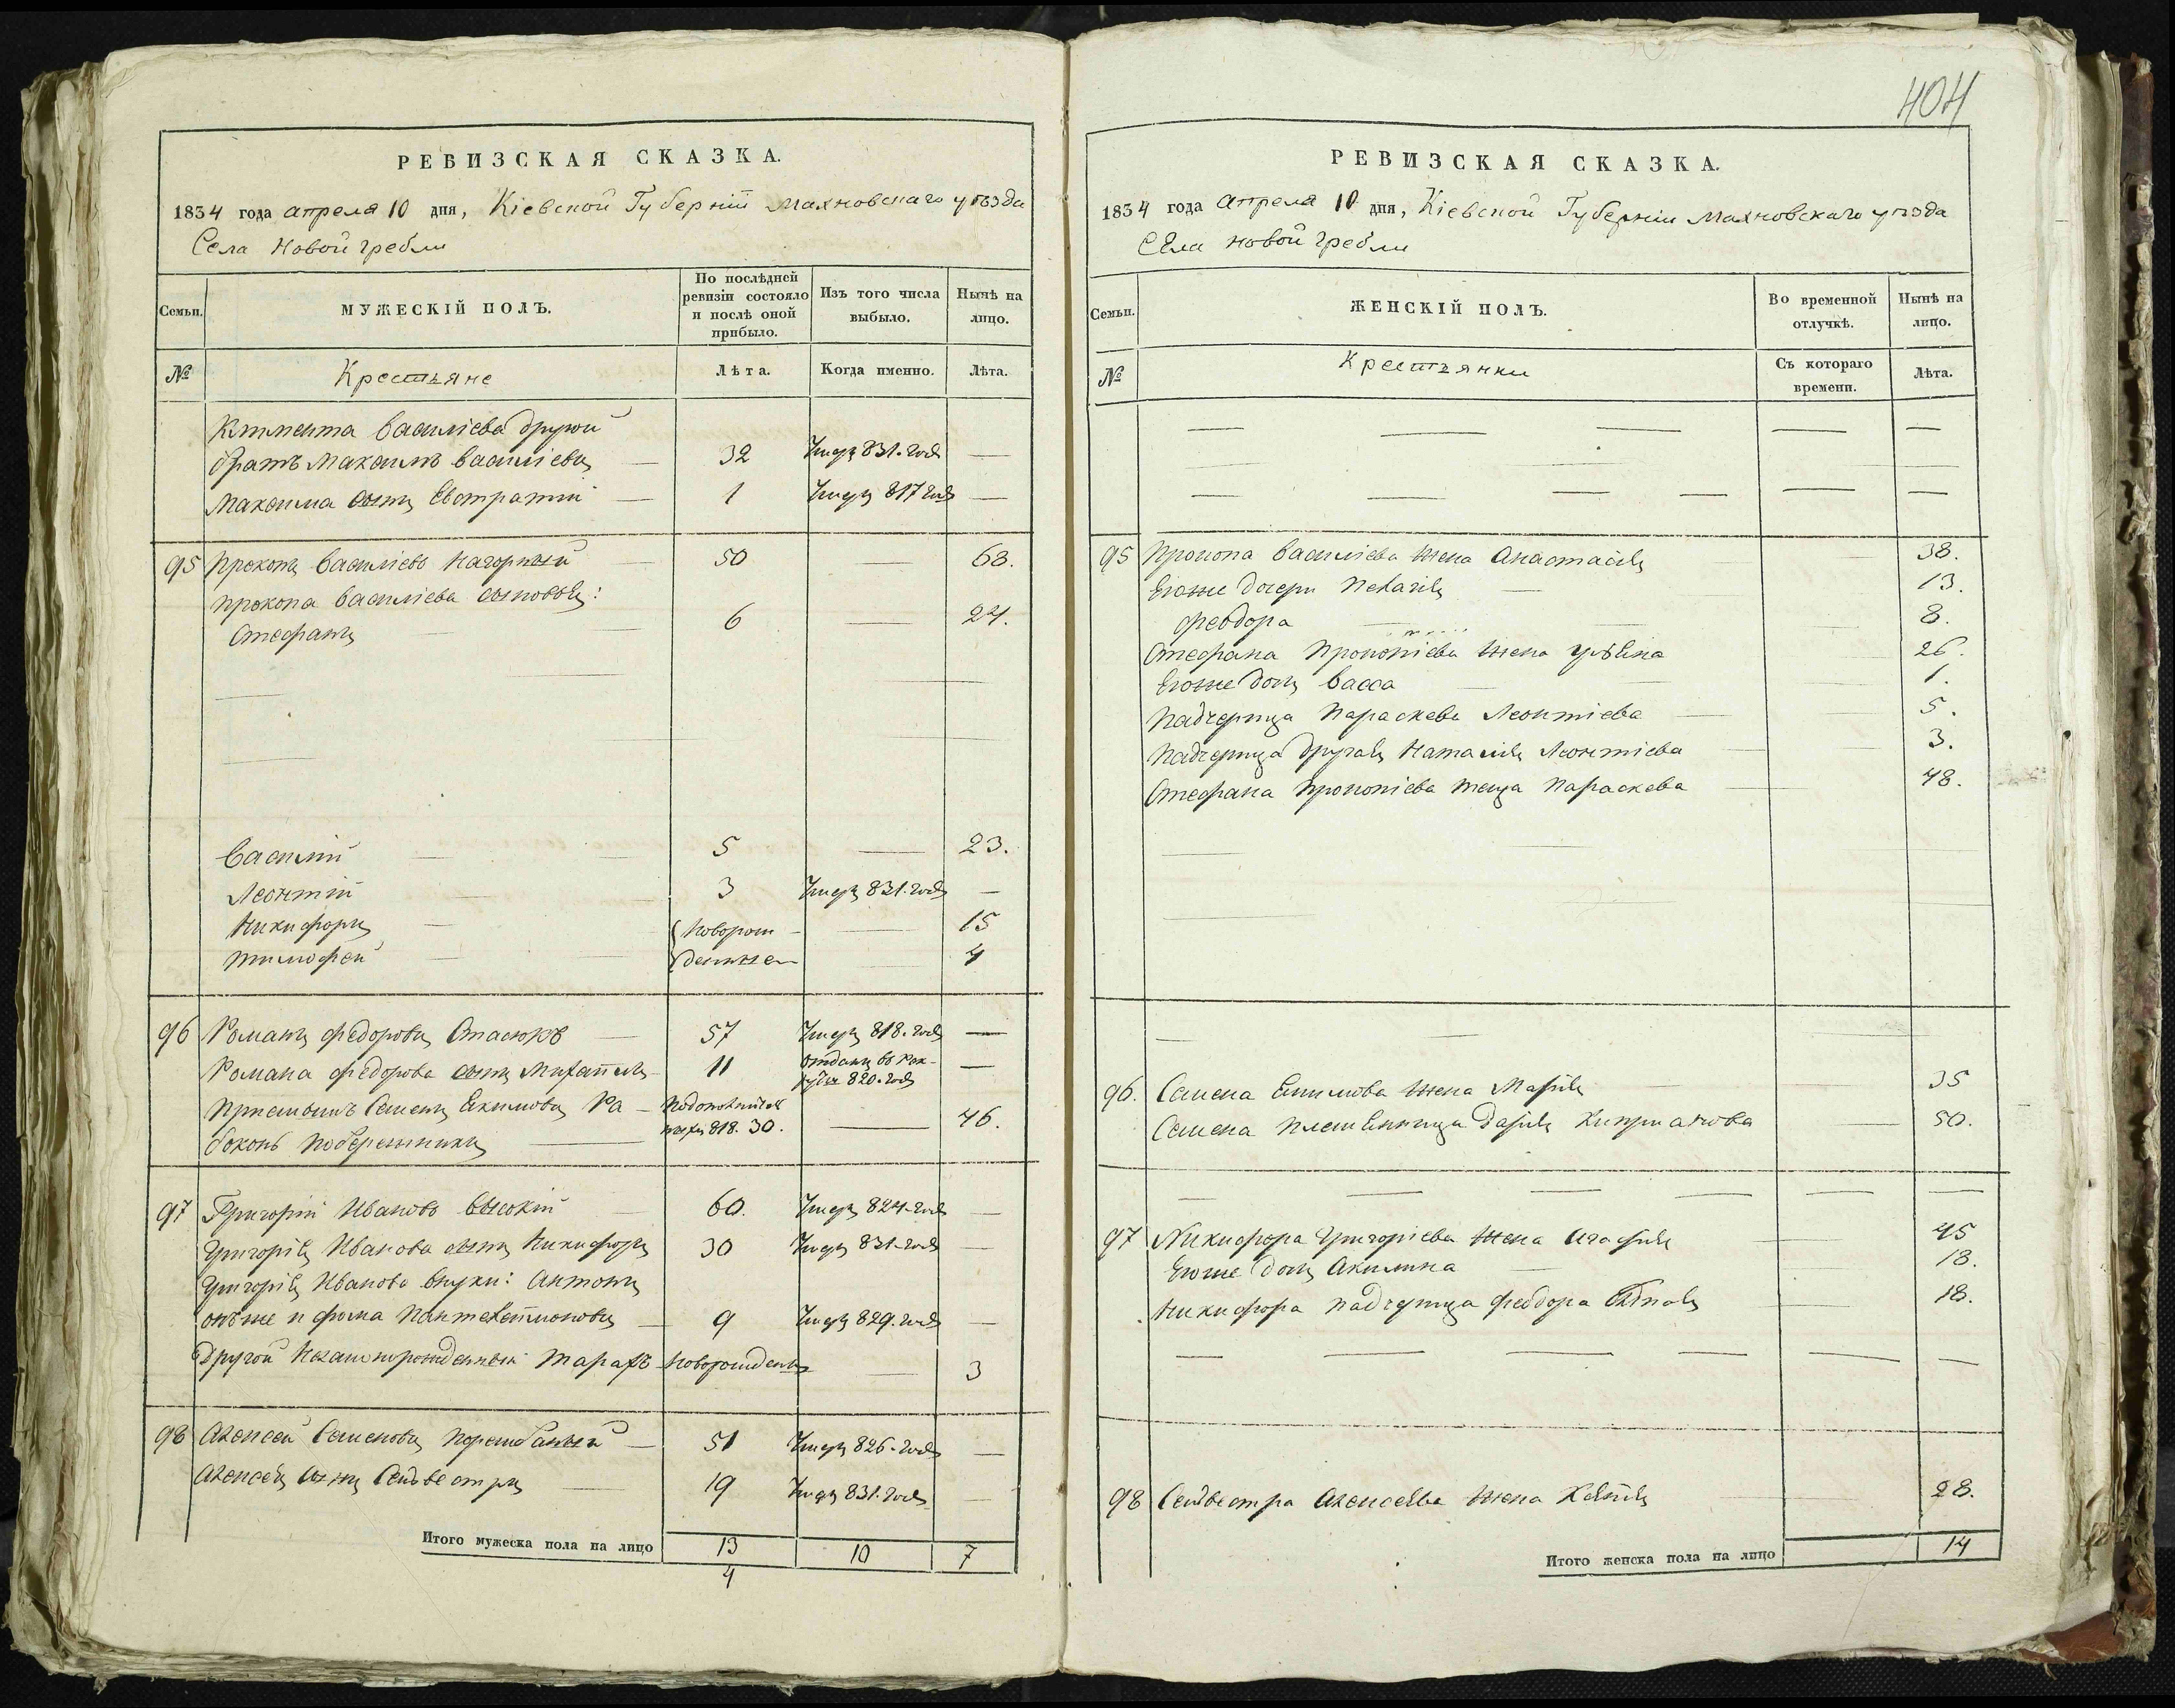 РЕВИЗСКАЯ СКАЗКА.
1834 года апреля 10 дня, Кіевской Губерніи Махновскаго уѣзда
Села Новой гребли
Семьи.
МУЖЕСКІЙ ПОЛЪ.
По послѣдней ревизіи состояло и послѣ оной прибыло.
Изъ того числа выбыло.
Нынѣ на лицо.
№
Крестьяне
Лѣта.
Когда именно.
Лѣта.
Климента Василіева другой
братъ Максимъ Василіевъ 32 Умеръ 831. года
Максима сынъ Евстратій 1 Умеръ 817 года
95 Прокопъ Василіевъ Нагорный 50 68.
Прокопа Василіева сыновья:
Стефанъ 6 24.
Василій 5 23.
Леонтій 3 Умеръ 831. года
Никифоръ новорож 15
Тимофей денные 4
96 Романъ Федоровъ Стасюкъ 57 Умеръ 818. года
Романа Федорова сынъ Михаилъ 11 отданъ въ рек-
руты 820. года
Пріемышъ Семенъ Екимовъ 818. 30. 46.
Побережникъ
97 Григорій Ивановъ Высокій 60. Умеръ 824. года
Григорія Иванова сынъ Никифоръ 30 Умеръ 831. года
Григорія Иванова внуки: Антонъ
онъ же и Фома Пантелеймоновъ 9 Умеръ 829. года
Другой незаконорожденный Тарасъ новорожденъ 3
98 Алексей Семеновъ 51 Умеръ 826. года
Алексея сынъ Сельвестръ 19 Умеръ 831. года
Итого мужеска пола на лицо 13 10 7
4
404
РЕВИЗСКАЯ СКАЗКА.
1834 года апреля 10 дня, Кіевской Губерніи Махновскаго уѣзда
Села Новой гребли
Семьи.
ЖЕНСКІЙ ПОЛЪ.
Во временной отлучкѣ.
Нынѣ на лицо.
№
Крестьянки
Съ котораго времени.
Лѣта.
95 Прокопа Василіева жена Анастасія 38.
Егоже дочери Пелагія 13.
Феодора 8.
Стефана Прокопіева жена 26.
Егоже дочь Васса 1.
Падчерица Параскева Леонтіева 5.
Падчерица другая Наталія Леонтіева 3.
Стефана Прокопіева теща Параскева 48.
96. Семена Екимова жена Марія 35
Семена племенница Дарія Кипріанова 50.
97 Никифора Григоріева жена Агафія 45
Егоже дочь Акилина 18.
Никифора падчерица Феодора 18.
98 Сельвестра Алексеева жена 28.
Итого женска пола на лицо 14